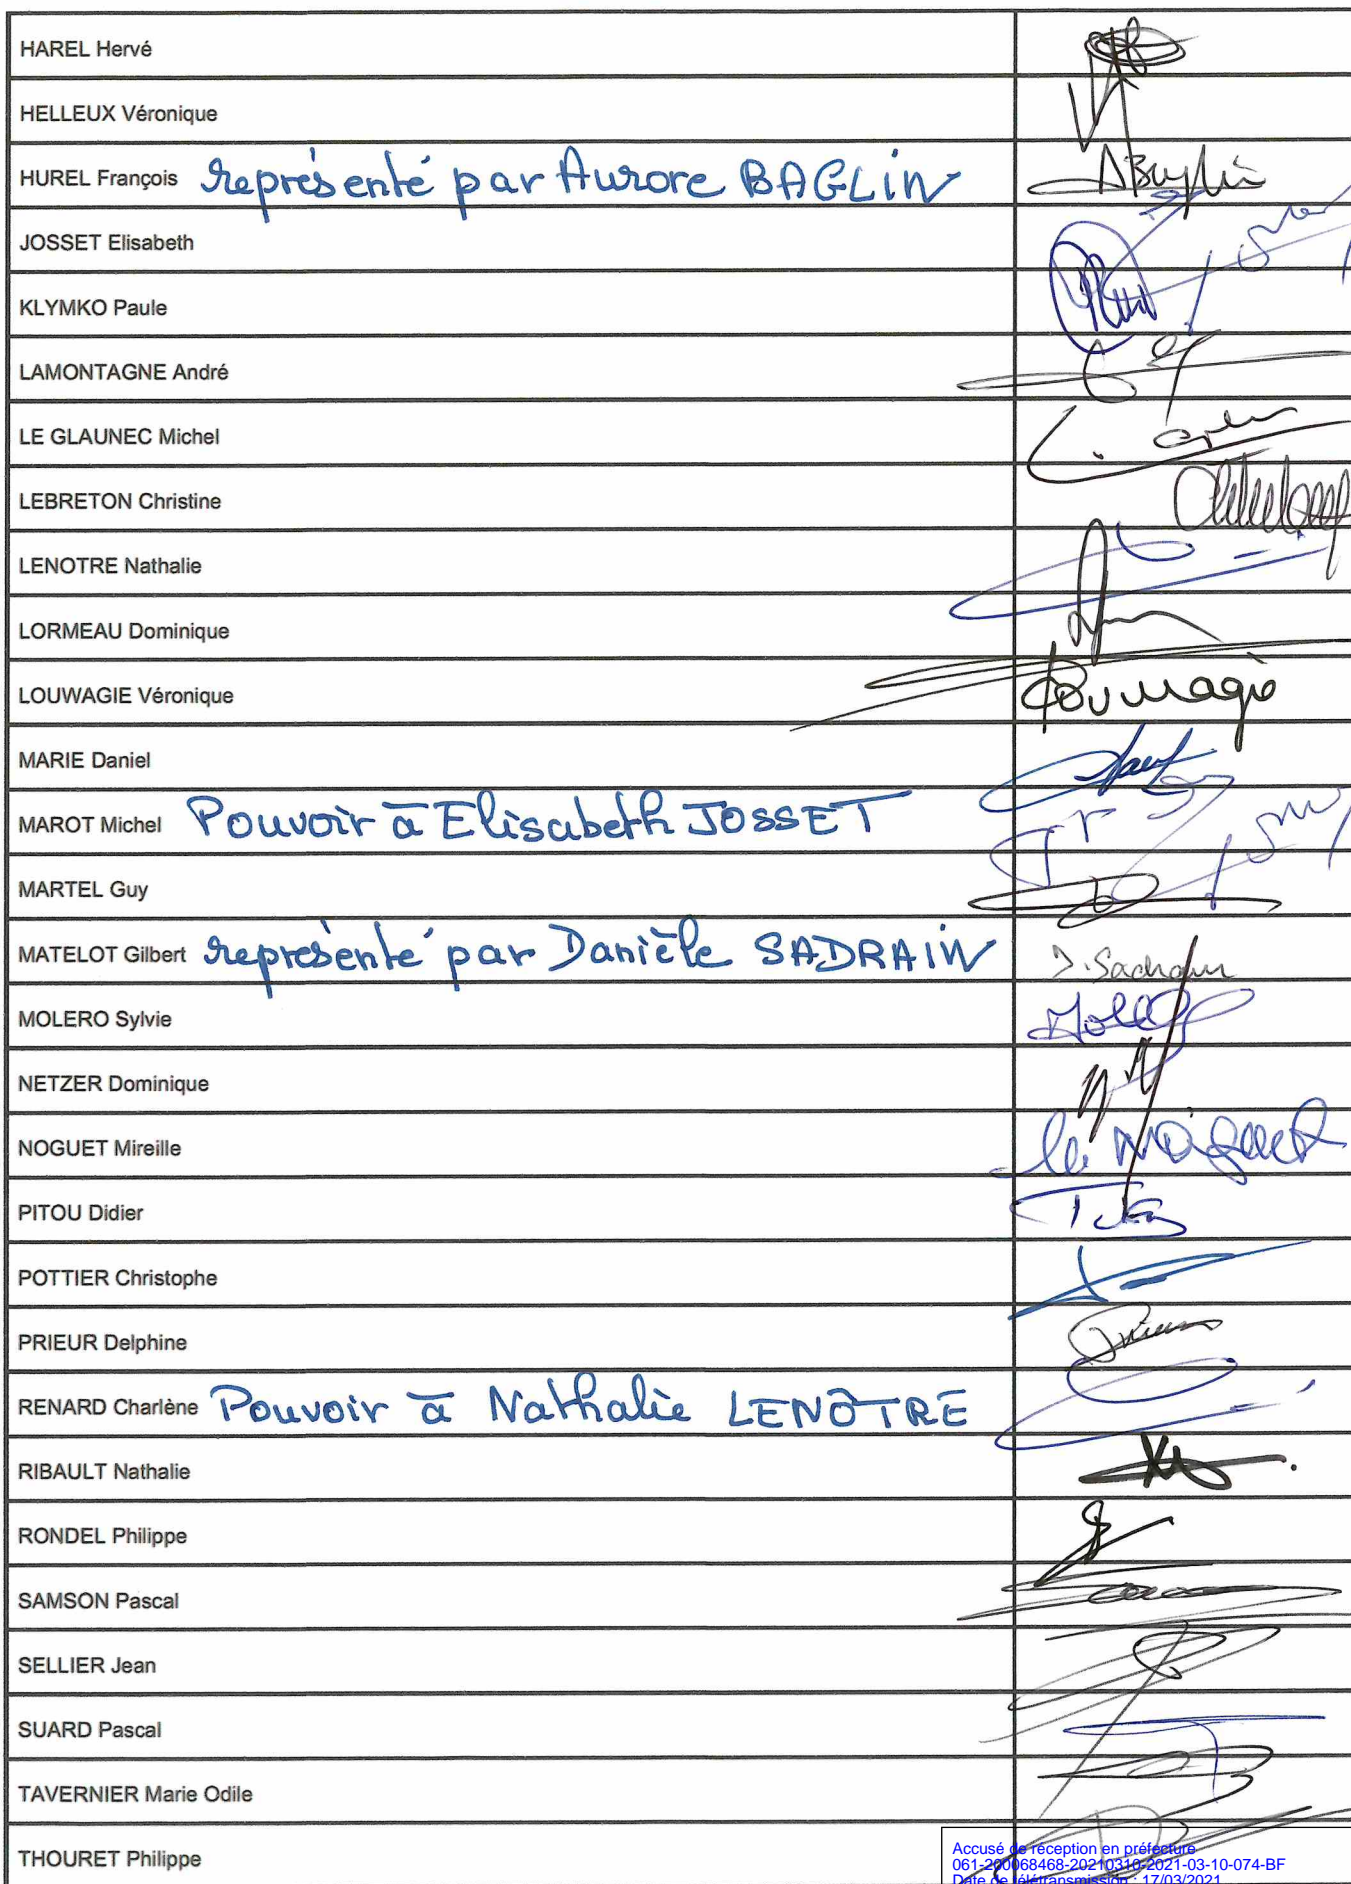 HAREL Hervé
HELLEUX Véronique
HUREL François représenté par Aurore BAGLIN
JOSSET Elisabeth
KLYMKO Paule
LAMONTAGNE André
LE GLAUNEC Michel
LEBRETON Christine
LENOTRE Nathalie
LORMEAU Dominique
LOUWAGIE Véronique
MARIE Daniel
MAROT Michel Pouvoir à Elisabeth JOSSET
MARTEL Guy
MATELOT Gilbert représenté par Danièle SADRAIN D. Sadrain
MOLERO Sylvie
NETZER Dominique
NOGUET Mireille
PITOU Didier
POTTIER Christophe
PRIEUR Delphine
RENARD Charlène Pouvoir à Nathalie LENÔTRE
RIBAULT Nathalie
RONDEL Philippe
SAMSON Pascal
SELLIER Jean
SUARD Pascal
TAVERNIER Marie Odile
THOURET Philippe
Accusé de réception en préfecture
061-200068468-20210310-2021-03-10-074-BF
Date de télétransmission : 17/03/2021